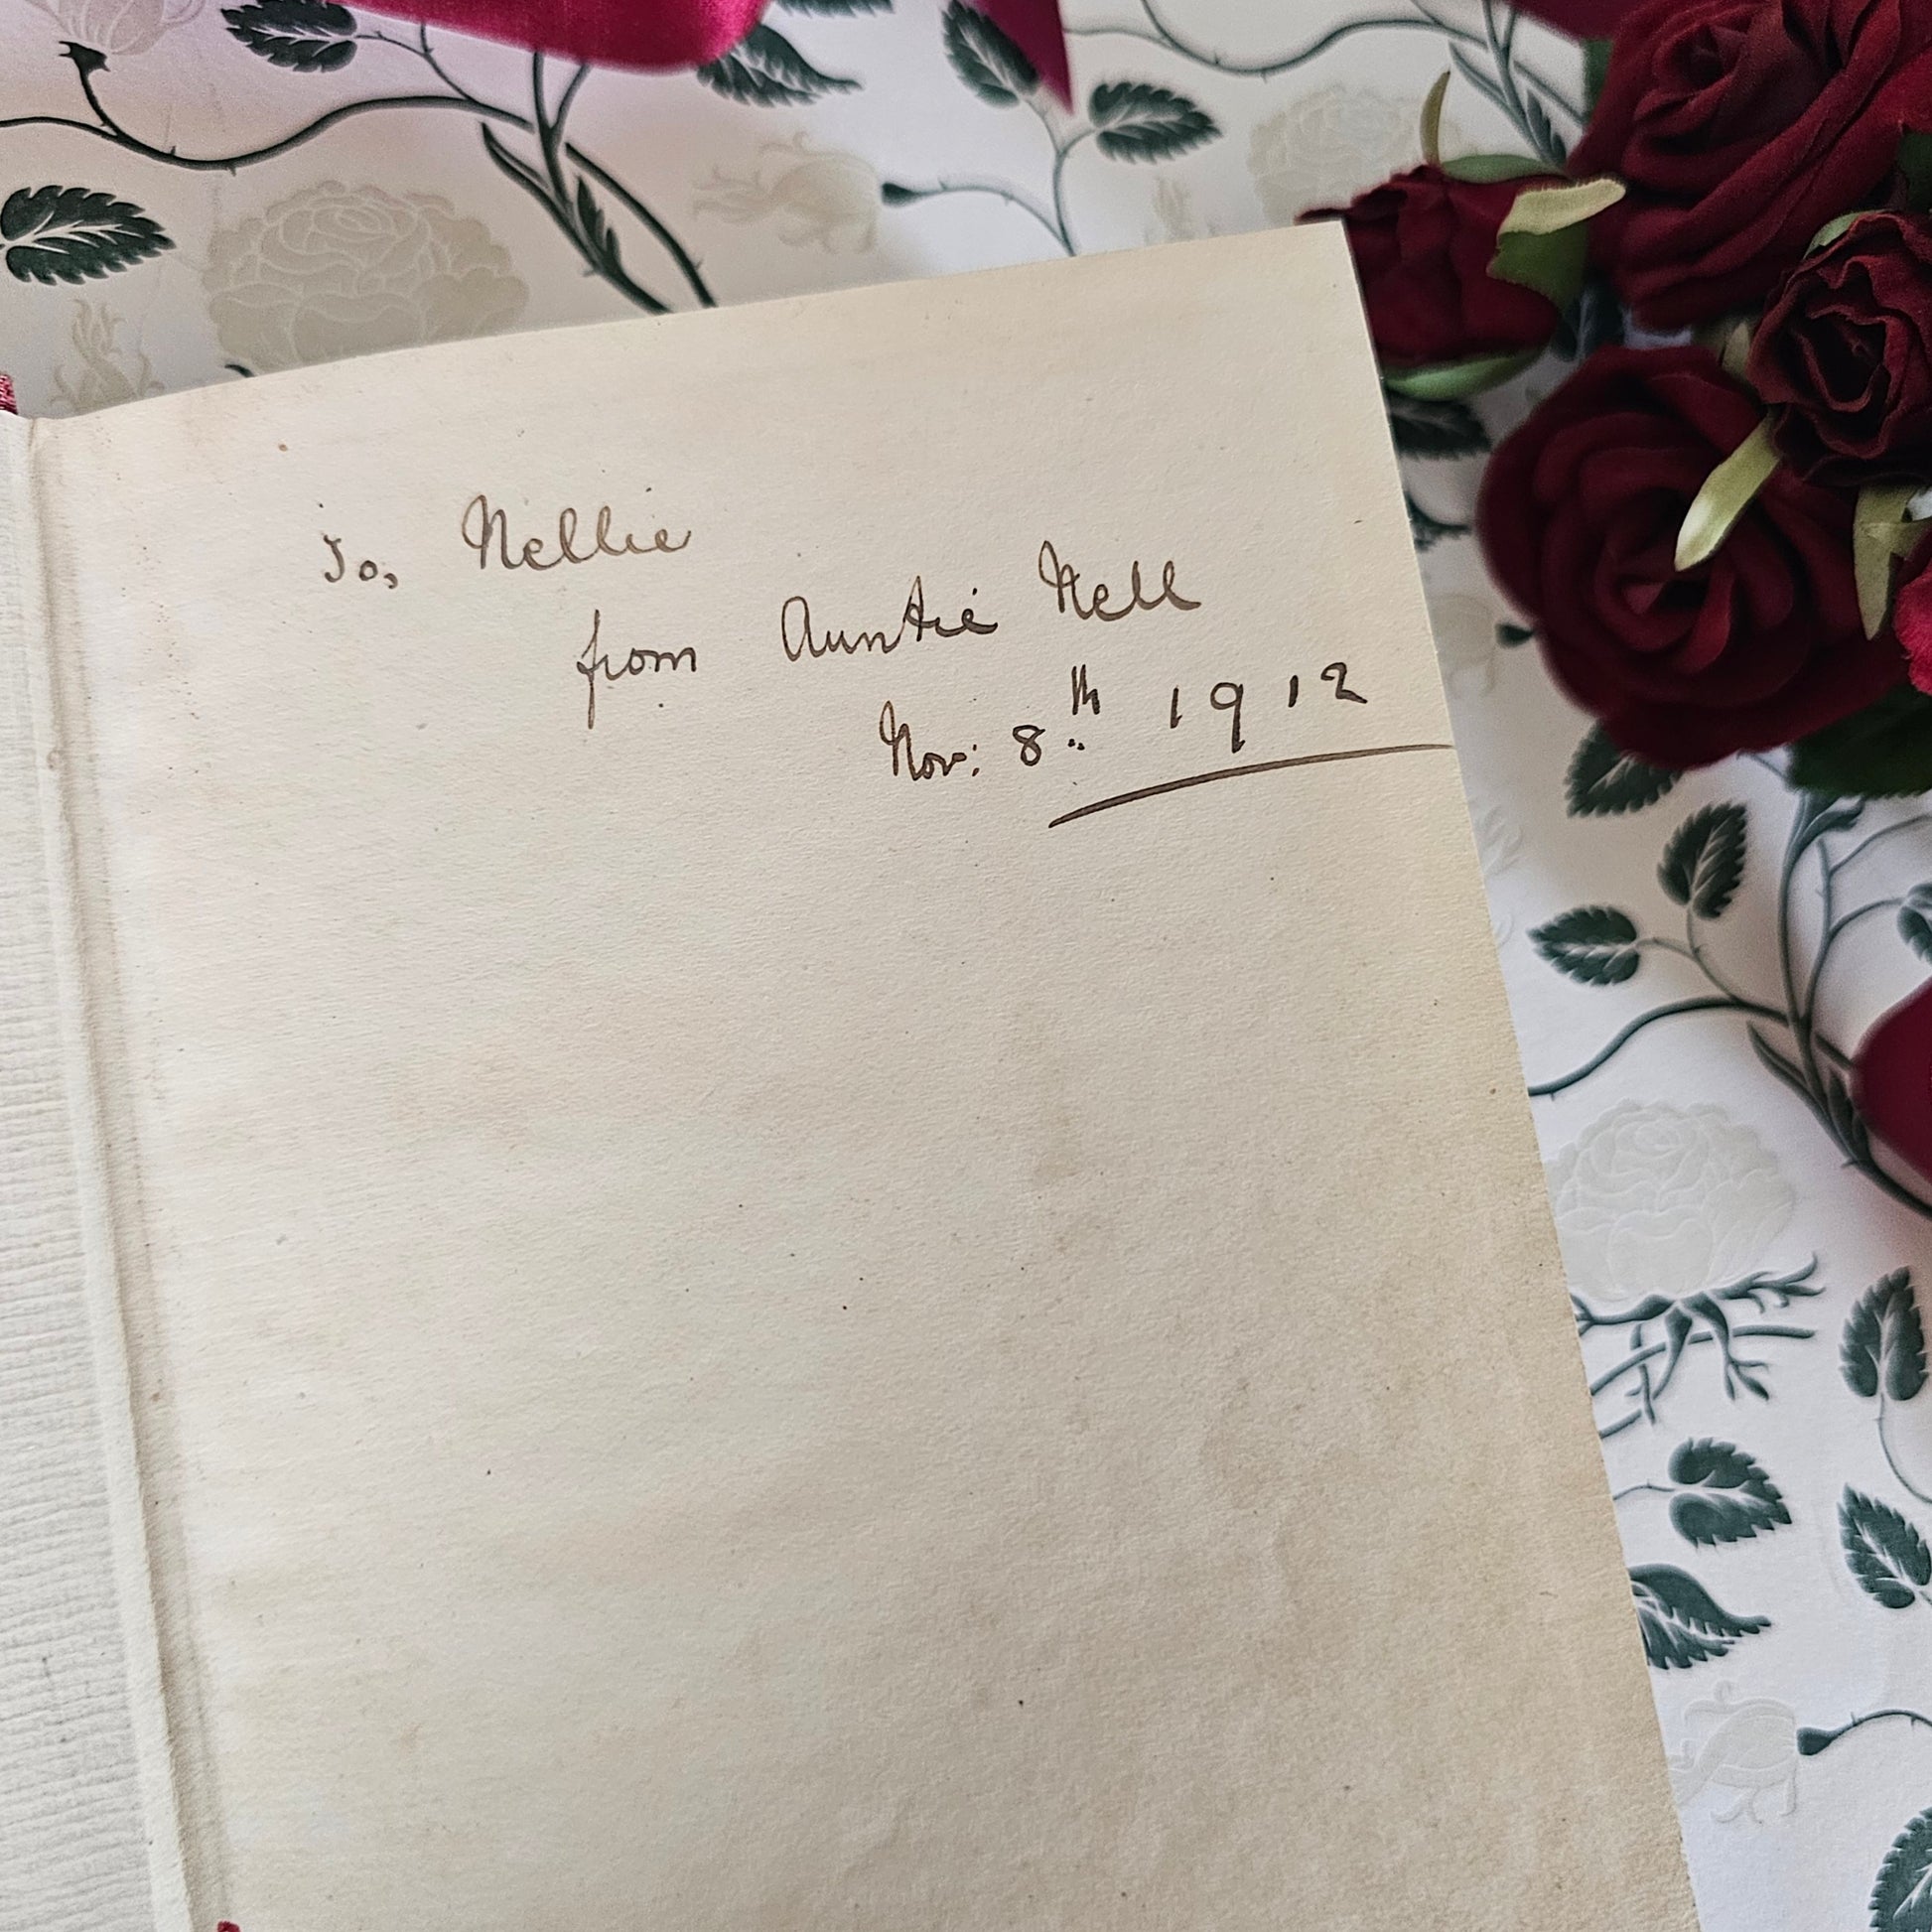 To, Nellie
from Auntie Nell
Nov: 8th 1912